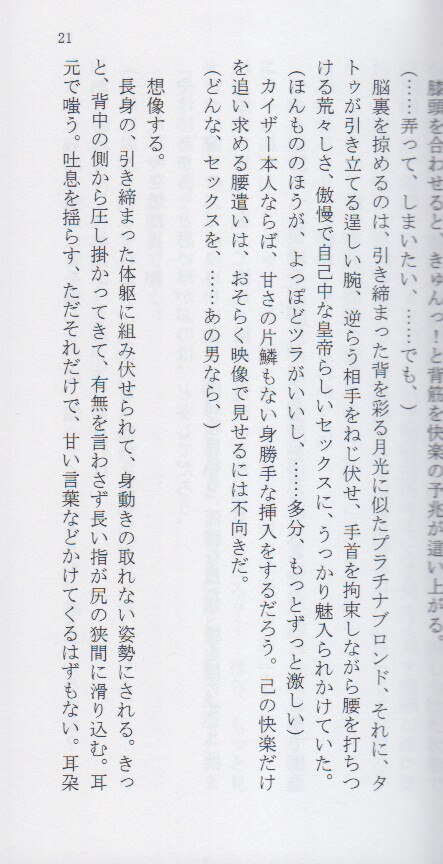 膝頭を合わせると、きゅんっ！と背筋を快楽の予兆が這い上がる。
（……弄って、しまいたい、……でも、）
脳裏を掠めるのは、引き締まった背を彩る月光に似たプラチナブロンド、それに、タ
トゥが引き立てる逞しい腕、逆らう相手をねじ伏せ、手首を拘束しながら腰を打ちつ
ける荒々しさ、傲慢で自己中な皇帝らしいセックスに、うっかり魅入られかけていた。
（ほんもののほうが、よっぽどツラがいいし、……多分、もっとずっと激しい）
カイザー本人ならば、甘さの片鱗もない身勝手な挿入をするだろう。己の快楽だけ
を追い求める腰遣いは、おそらく映像で見せるには不向きだ。
（どんな、セックスを、……あの男なら、）
想像する。
長身の、引き締まった体躯に組み伏せられて、身動きの取れない姿勢にされる。きっ
と、背中の側から圧し掛かってきて、有無を言わさず長い指が尻の狭間に滑り込む。耳
元で嗤う。吐息を揺らす、ただそれだけで、甘い言葉などかけてくるはずもない。耳朶
21